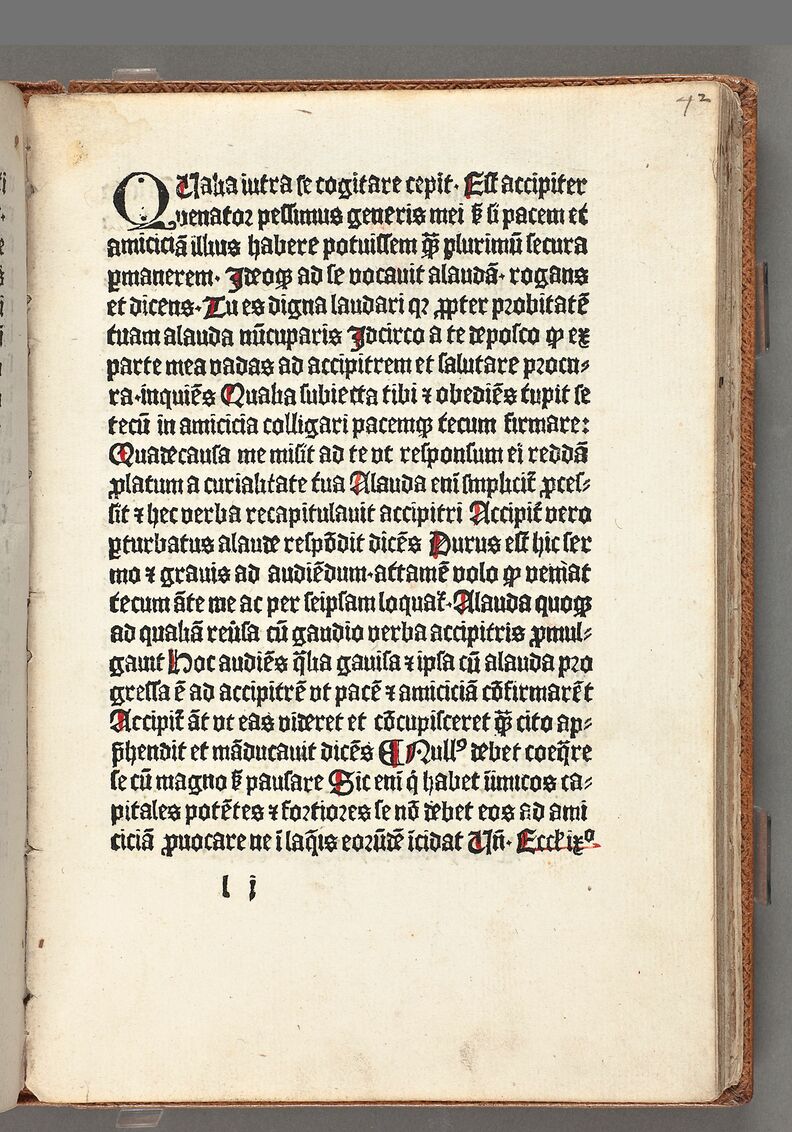 42
QUalia intra se cogitare cepit. Est accipiter
venator pessimus generis mei ꝫ si pacem et
amiciciā illius habere potuissem qꝫ̄ plurimū secura
ꝑmanerem. Ideoqꝫ ad se vocauit alaudā. rogans
et dicens. Tu es digna laudari qꝛ ꝓpter probitatē
tuam alauda nūcuparis Idcirco a te deposco ꝙ ex
parte mea vadas ad accipitrem et salutare procu⸗
ra. inquiēs Qualia subiecta tibi ⁊ obediēs cupit se
tecū in amicicia colligari pacemqꝫ tecum firmare:
Qua de causa me misit ad te vt responsum ei reddā
ꝓlatum a curialitate tua Alauda eni simplicit̄ ꝓces⸗
sit ⁊ hec verba recapitulauit accipitri Accipit̄ vero
ꝑturbatus alaude respōdit dicēs Durus est hic ser
mo ⁊ grauis ad audiēdum. attamē volo ꝙ veniat
tecum āte me ac per seipsam loquat᷑. Alauda quoqꝫ
ad qualiā reūsa cū gaudio verba accipitris ꝓmul⸗
gauit Hoc audiēs q̄lia gauisa ⁊ ipsa cū alauda pro
gressa ē ad accipitrē vt pacē ⁊ amiciciā cōfirmarēt
Accipit̄ āt vt eas videret et cōcupisceret qꝫ̄ cito ap⸗
p̄hendit et māducauit dicēs ¶ Nullꝰ debet coeq̄re
se cū magno ꝫ pausare Sic eni q̇ habet inimicos ca⸗
pitales potētes ⁊ fortiores se nō debet eos ad ami
ciciā ꝓuocare ne ī laq̄is eorūdē īcidat Vn̄. Eccl̄ ixº
l ij